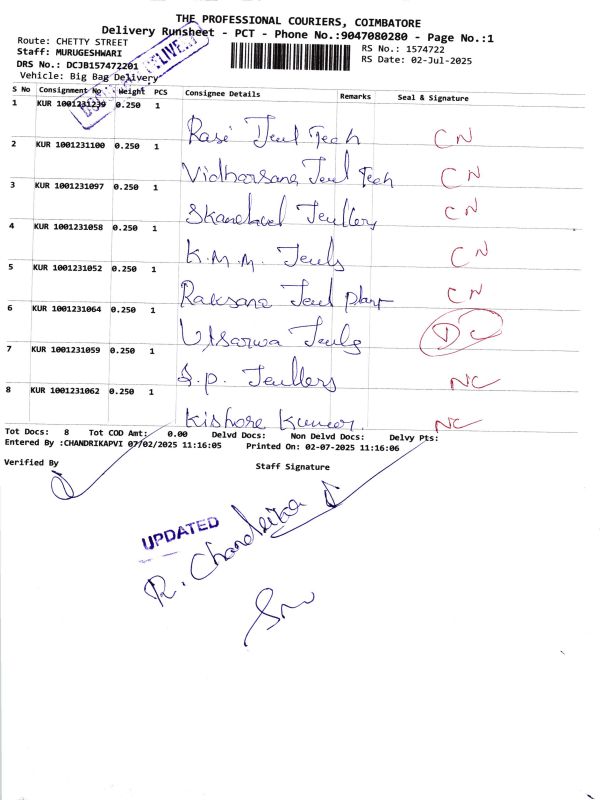 THE PROFESSIONAL COURIERS, COIMBATORE
Delivery Runsheet - PCT - Phone No.:9047080280 - Page No.:1
Route: CHETTY STREET
RS No.: 1574722
Staff: MURUGESHWARI
RS Date: 02-Jul-2025
DRS No.: DCJB157472201
Vehicle: Big Bag Delivery
S No Consignment No Weight PCS Consignee Details Remarks Seal & Signature
1 KUR 1001231239 0.250 1
Jeul Tech CN
2 KUR 1001231100 0.250 1
Jeul Tech CN
3 KUR 1001231097 0.250 1
Jeullery CN
4 KUR 1001231058 0.250 1
K.M.M. Jeuls CN
5 KUR 1001231052 0.250 1
Raksana Jeul plant CN
6 KUR 1001231064 0.250 1
Jeuls DC
7 KUR 1001231059 0.250 1
S.P. Jeullers NC
8 KUR 1001231062 0.250 1
Kishore Kumar. NC
Tot Docs: 8 Tot COD Amt: 0.00 Delvd Docs: Non Delvd Docs: Delvy Pts:
Entered By :CHANDRIKAPVI 07/02/2025 11:16:05 Printed On: 02-07-2025 11:16:06
Verified By
Staff Signature
UPDATED
R. Chandrika